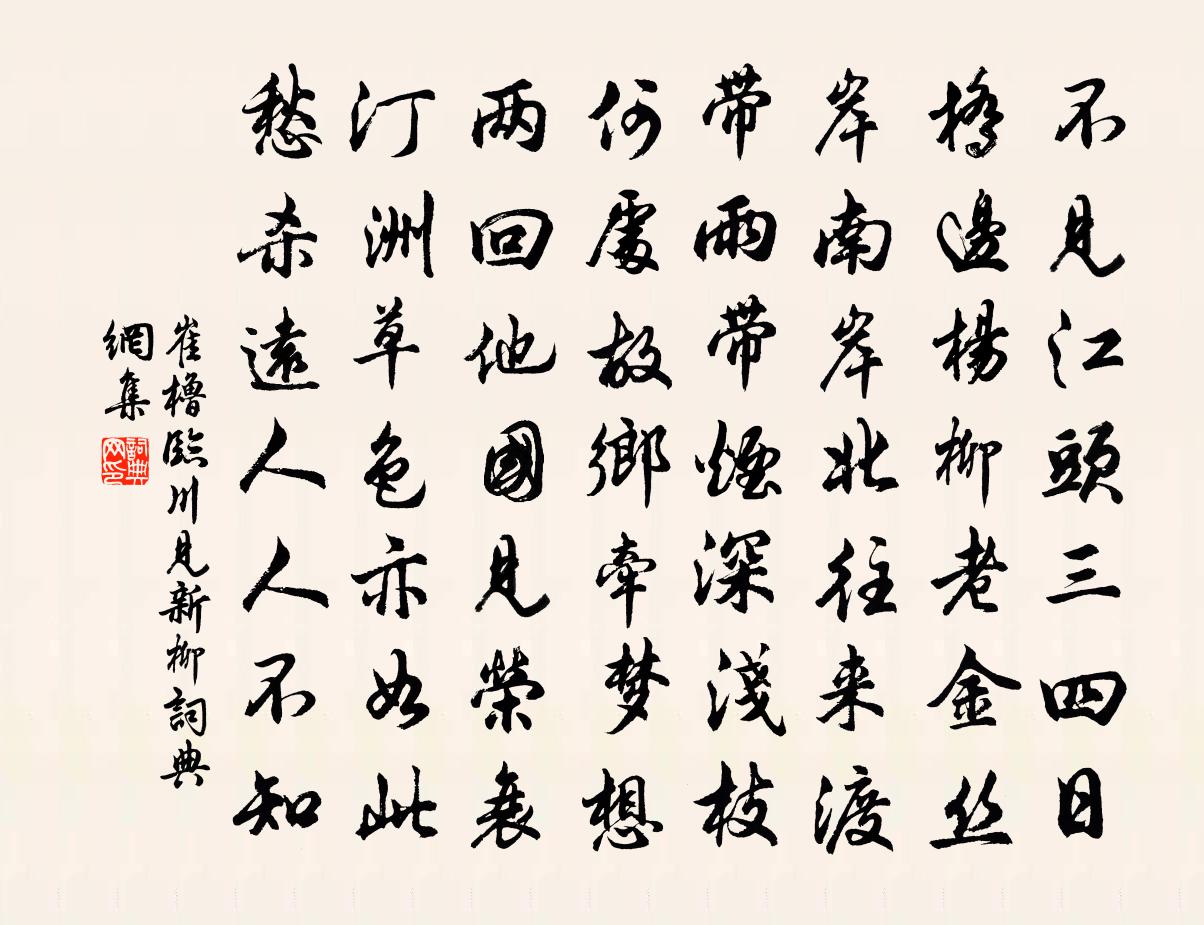 不見江頭三四日
橋邊楊柳老金丝
岸南岸北往来渡
带雨带煙深淺枝
何處故鄉牽梦想
两回他國見榮衰
汀洲草色亦如此
愁杀遠人人不知
崔櫓臨川見新柳詞典
網集
詞典
网印